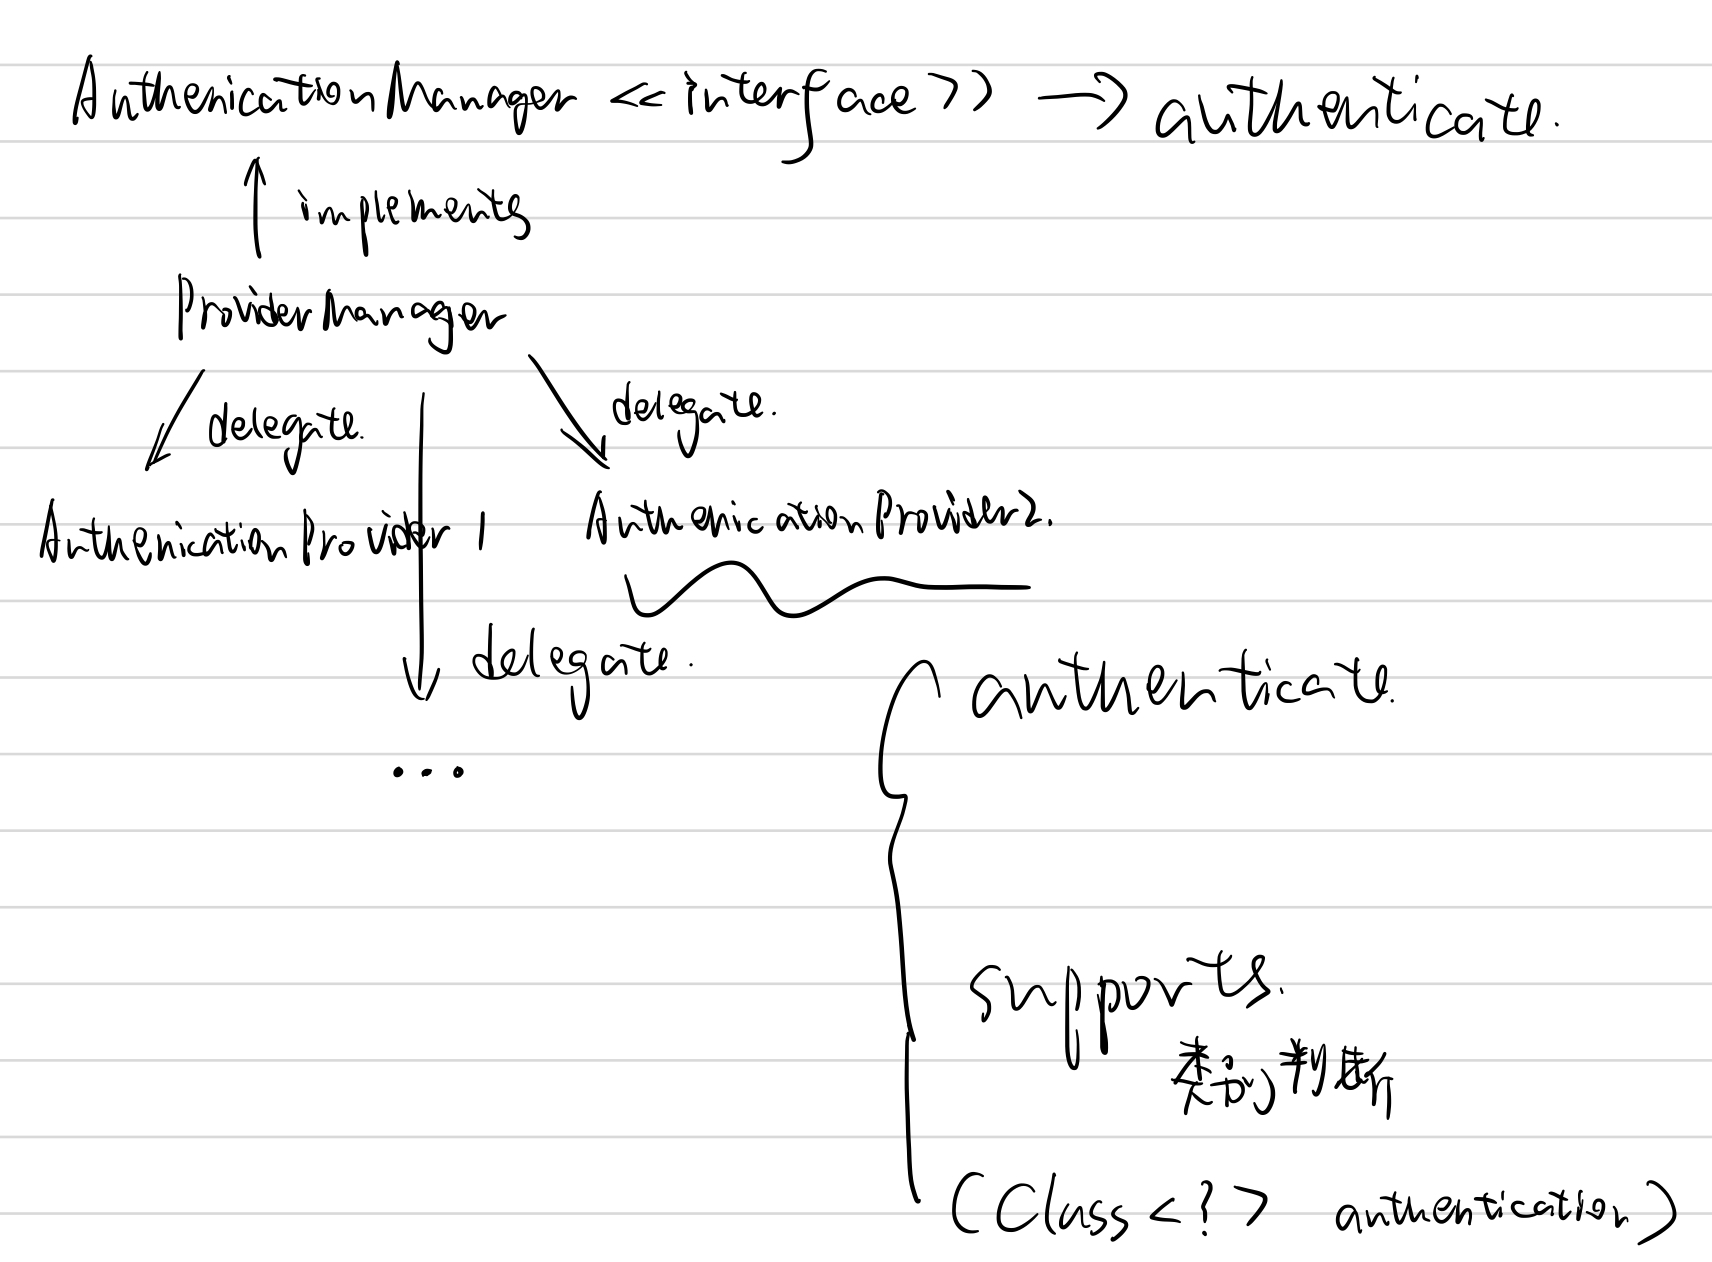 AuthenicationManager <<interface>> → authenticate.
↑ implements
ProviderManager
delegate.
delegate.
AuthenicationProvider 1
AuthenicationProvider2.
delegate.
...
authenticate.
supports.
类别判断
(Class<?> authentication)